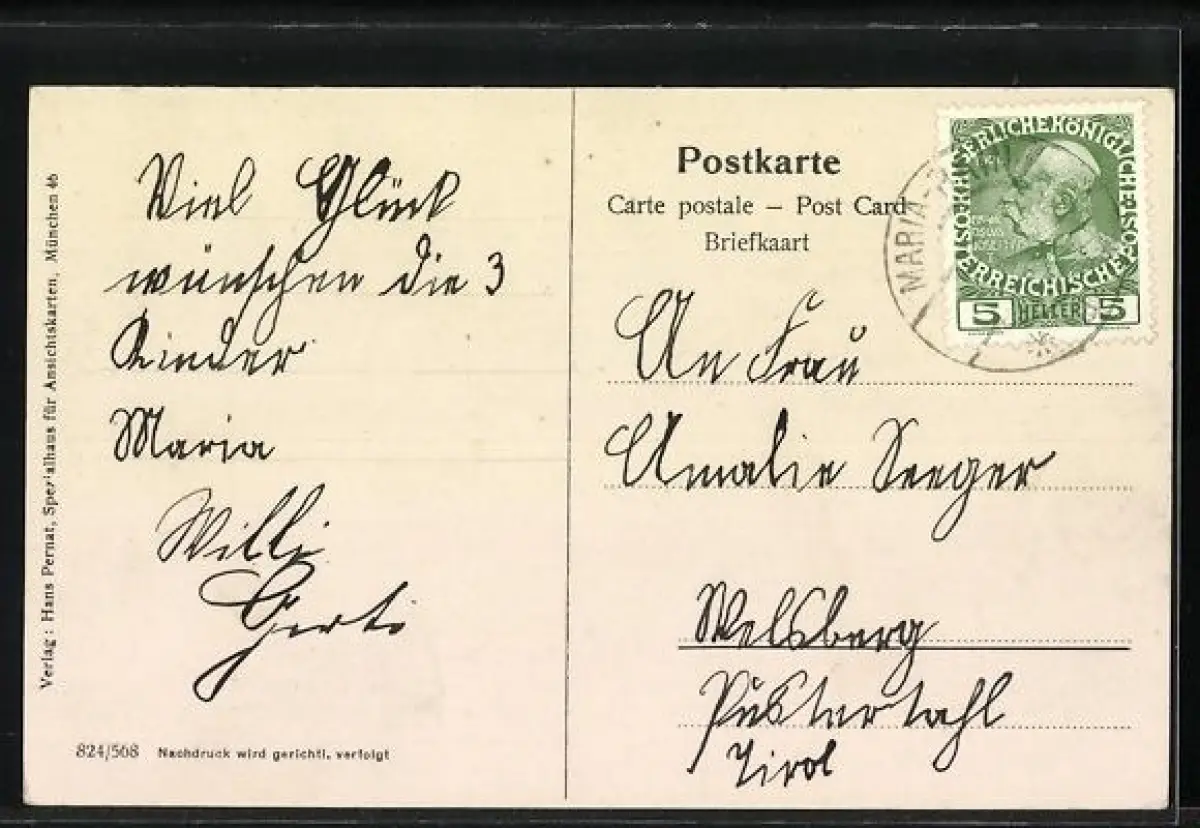 Viel Glück
wünschen die 3
Kinder
Maria
Willi
Gerti
Verlag: Hans Pernat, Spezialhaus für Ansichtskarten, München 46
824/568 Nachdruck wird gerichtl. verfolgt
Postkarte
Carte postale – Post Card
Briefkaart
KAISERLICHE KÖNIGLICHE ÖSTERREICHISCHE POST
5 HELLER 5
MARIA-
An Frau
Amalie Seeger
Welsberg
Pustertahl
Tirol